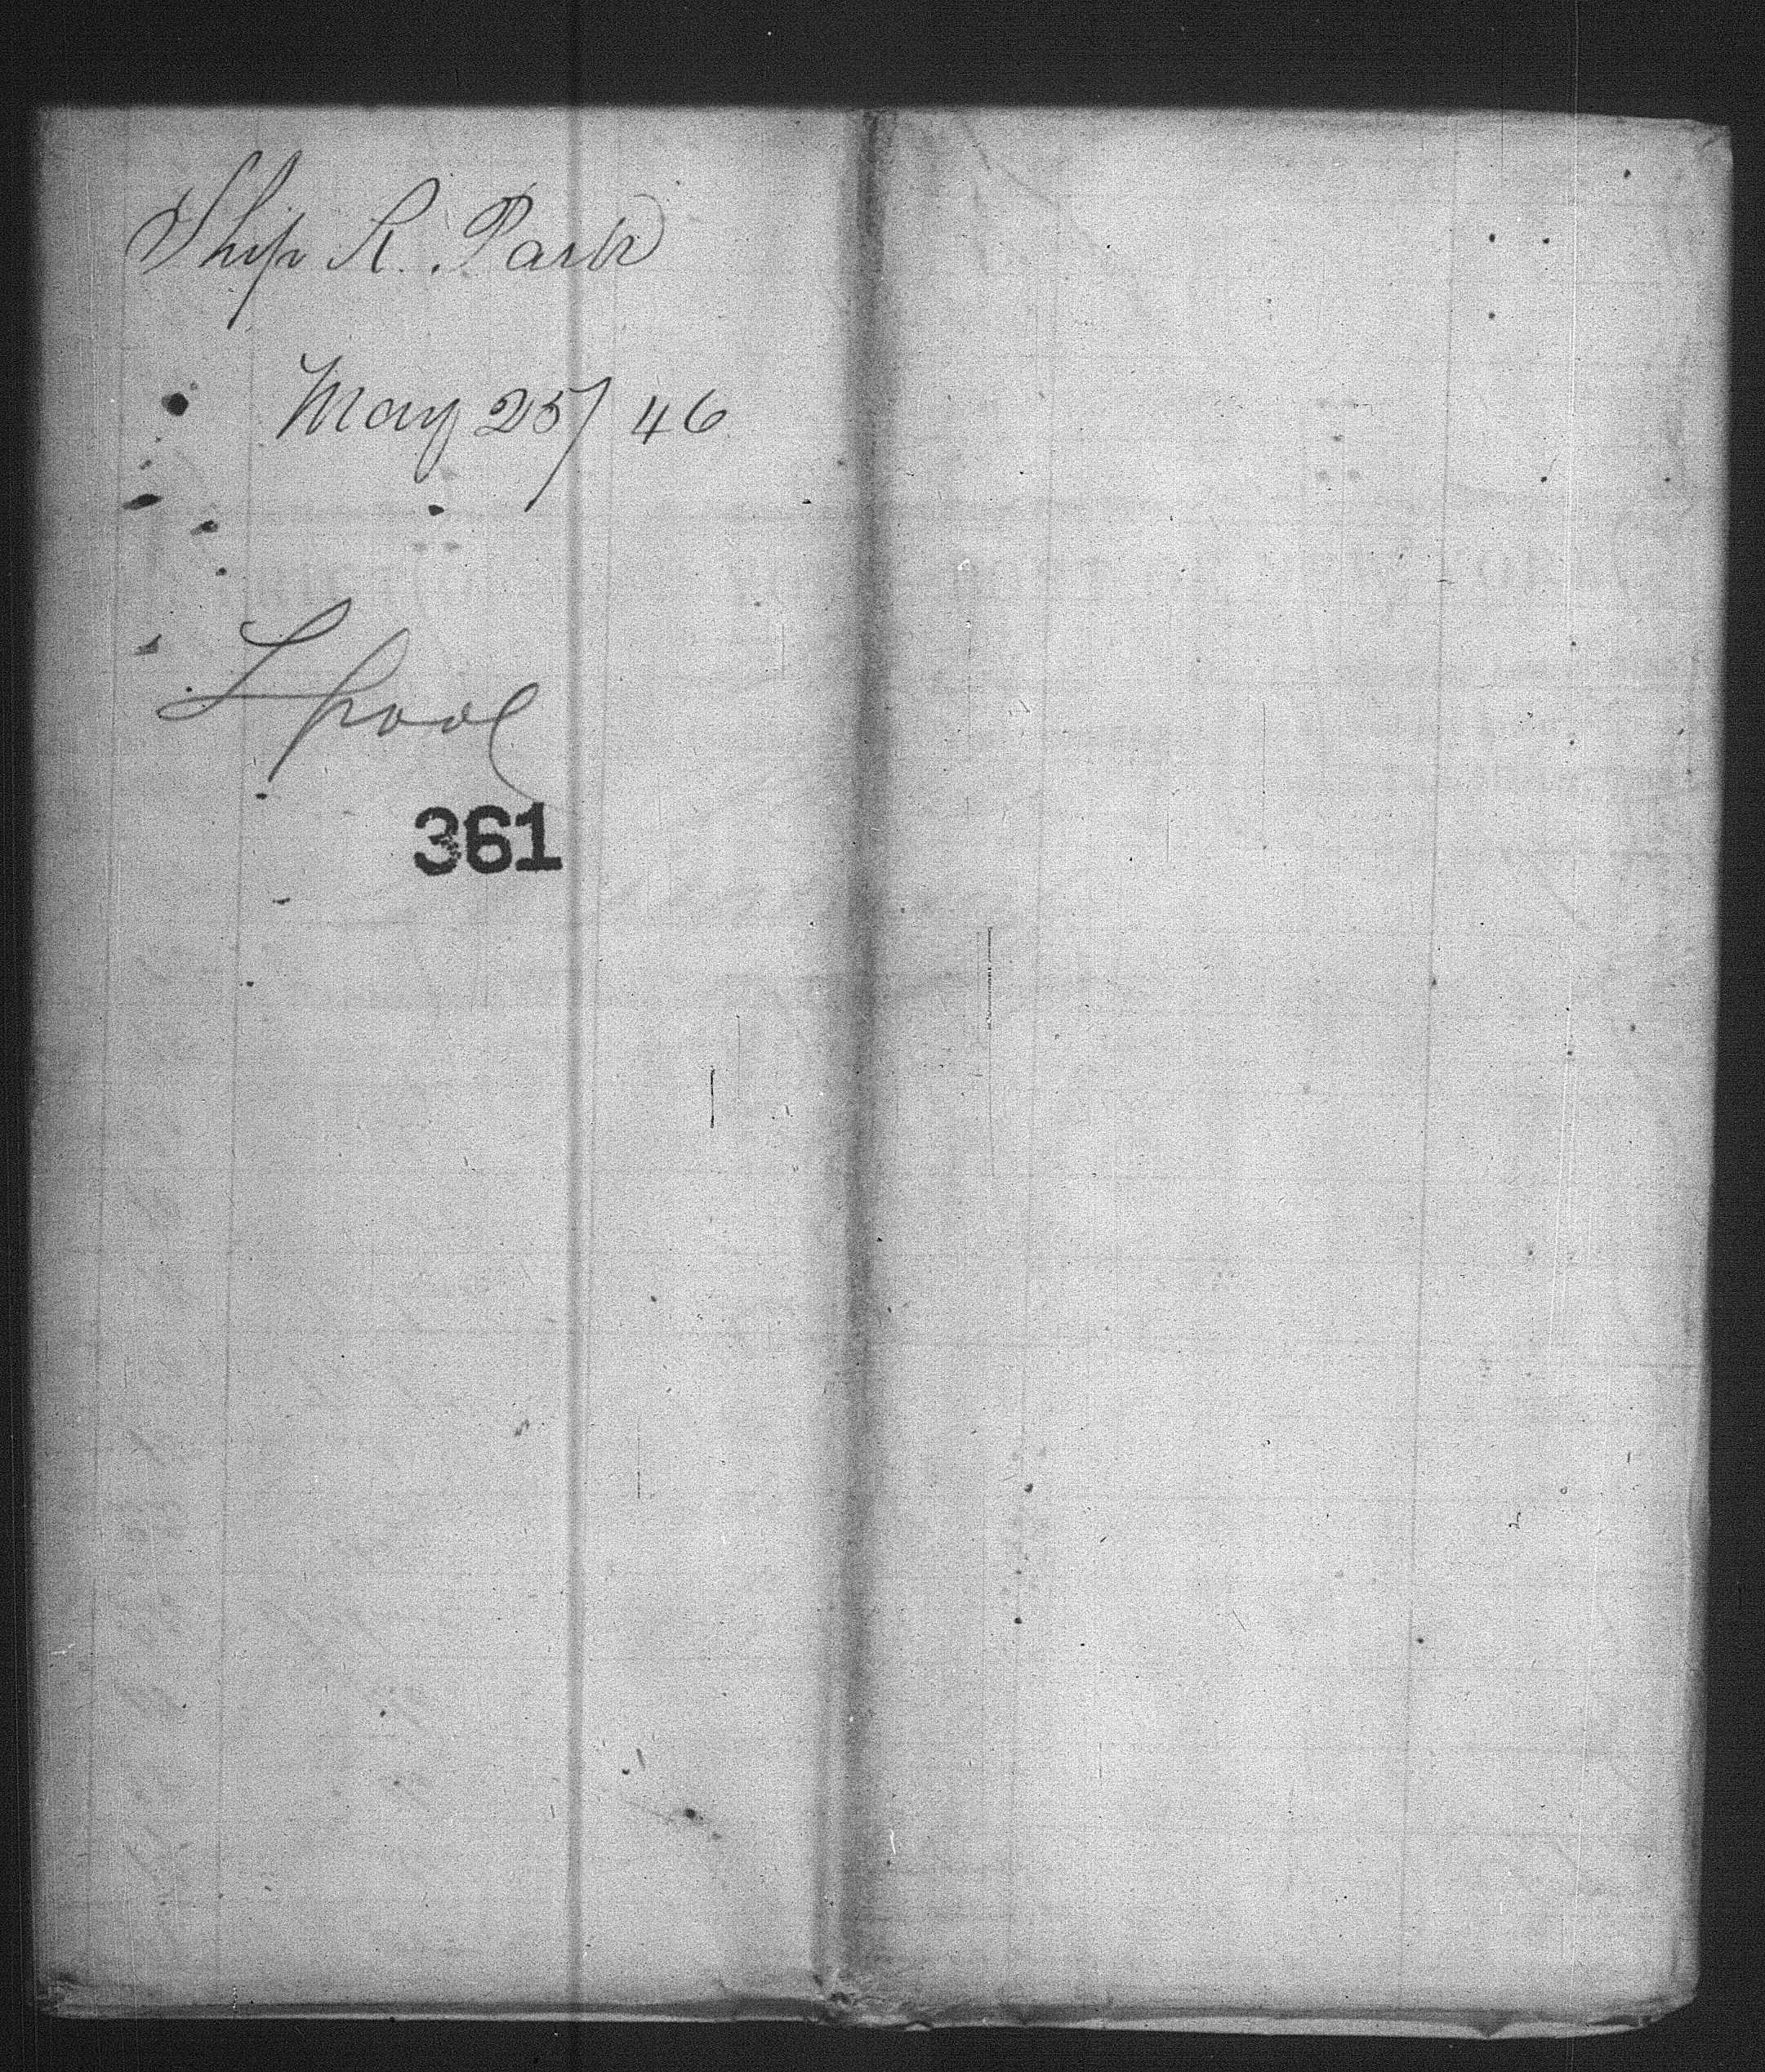 Ship R. Park
May 25/46
Lpool
361